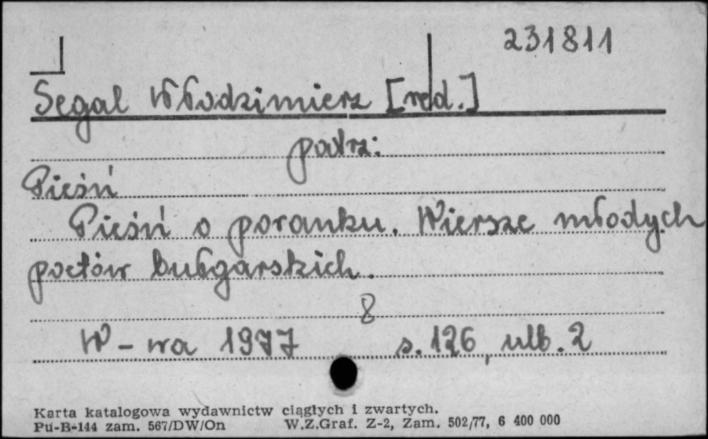 231811
Segal Włodzimierz [red.]
patrz:
Pieśń
Pieśń o poranku. Wiersze młodych
poetów bułgarskich.
8
W-wa 1977 s. 126, ulb. 2
Karta katalogowa wydawnictw ciągłych i zwartych.
Pu-B-144 zam. 567/DW/On W.Z.Graf. Z-2, Zam. 502/77, 6 400 000